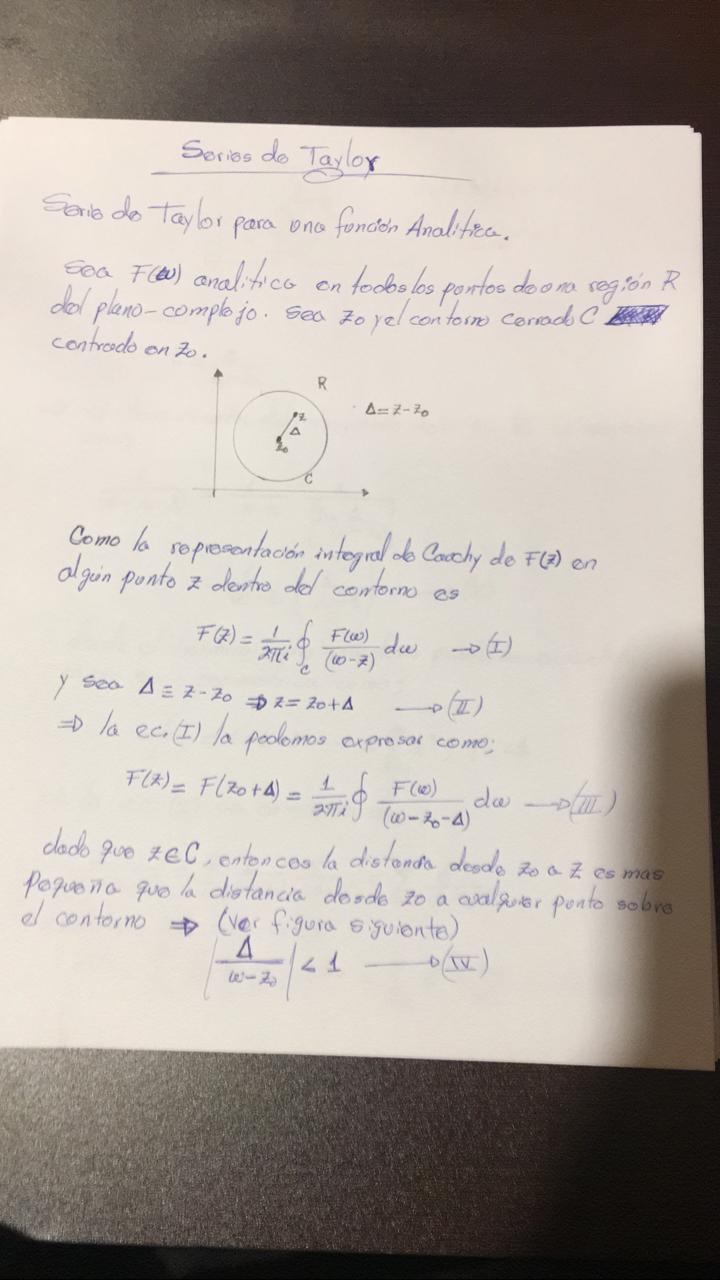 Series de Taylor
Serie de Taylor para una función Analítica.
Sea F(ω) analítica en todos los puntos de una región R
del plano-complejo. Sea z₀ y el contorno cerrado C
centrado en z₀.
R
z
Δ = z - z₀
Δ
z₀
C
Como la representación integral de Cauchy de F(z) en
algún punto z dentro del contorno es
F(z) = 1/2πi ∮_C F(ω)/(ω-z) dω → (I)
y sea Δ ≡ z - z₀ ⇒ z = z₀ + Δ → (II)
⇒ la ec. (I) la podemos expresar como;
F(z) = F(z₀+Δ) = 1/2πi ∮ F(ω)/(ω-z₀-Δ) dω → (III)
dado que z∈C, entonces la distancia desde z₀ a z es mas
pequeña que la distancia desde z₀ a cualquier punto sobre
el contorno ⇒ (ver figura siguiente)
|Δ/(ω-z₀)| < 1 → (IV)